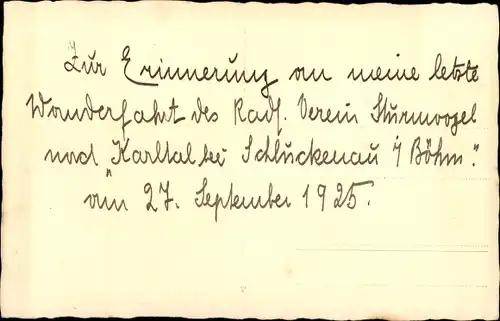 Zur Erinnerung an meine letzte
Wanderfahrt des Radf. Verein Sturmvogel
nach "Karltal bei Schluckenau i/ Böhm."
am 27. September 1925.